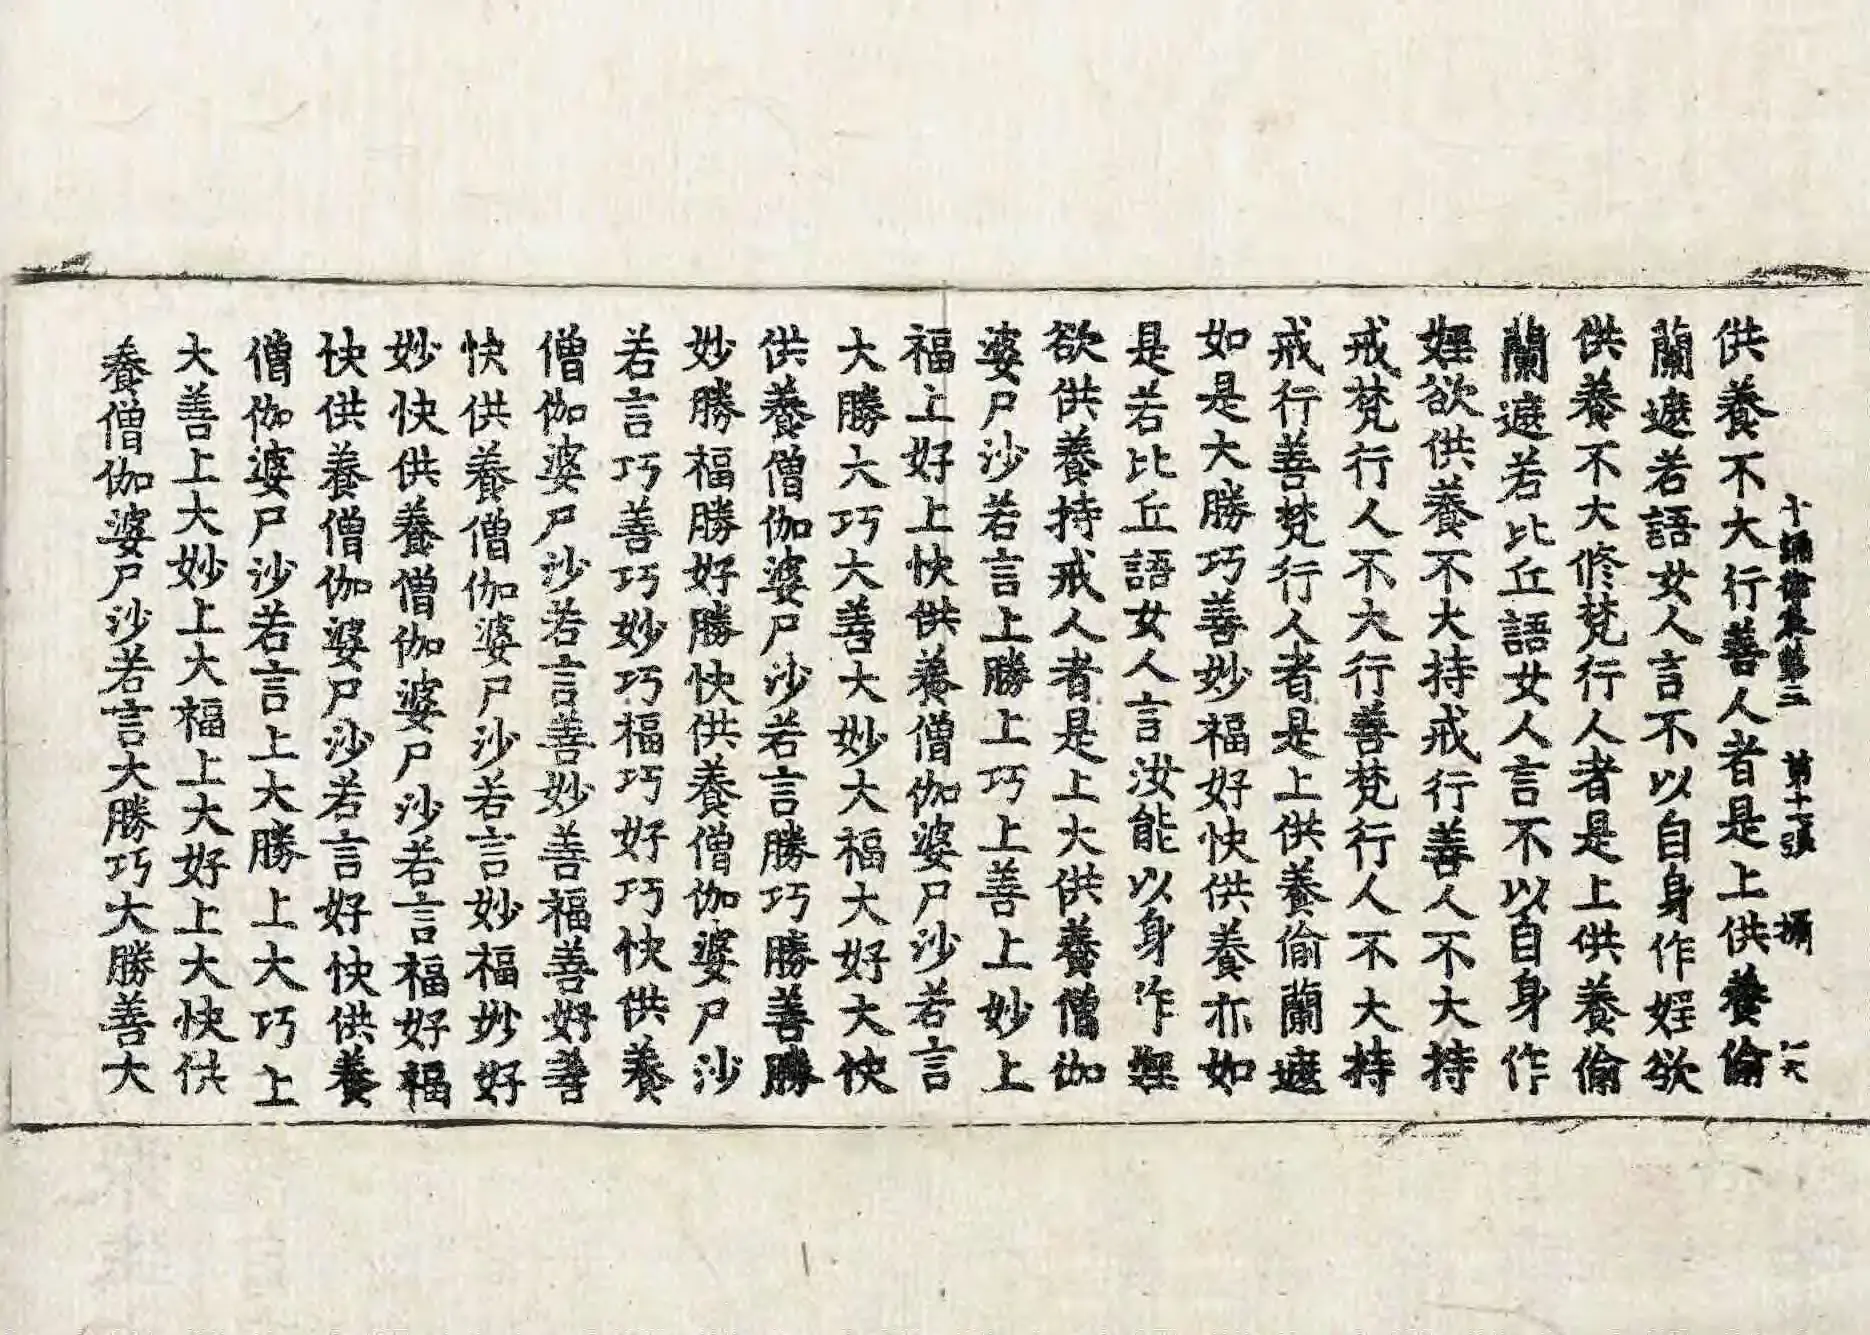 十誦律卷第三 第十七張 攝
供養不大行善人者是上供養偷
蘭遮若語女人言不以自身作婬欲
供養不大修梵行人者是上供養偷
蘭遮若比丘語女人言不以自身作
婬欲供養不大持戒行善人不大持
戒梵行人不大行善梵行人不大持
戒行善梵行人者是上供養偷蘭遮
如是大勝巧善妙福好快供養亦如
是若比丘語女人言汝能以身作婬
欲供養持戒人者是上大供養僧伽
婆尸沙若言上勝上巧上善上妙上
福上好上快供養僧伽婆尸沙若言
大勝大巧大善大妙大福大好大快
供養僧伽婆尸沙若言勝巧勝善勝
妙勝福勝好勝快供養僧伽婆尸沙
若言巧善巧妙巧福巧好巧快供養
僧伽婆尸沙若言善妙善福善好善
快供養僧伽婆尸沙若言妙福妙好
妙快供養僧伽婆尸沙若言福好福
快供養僧伽婆尸沙若言好快供養
僧伽婆尸沙若言上大勝上大巧上
大善上大妙上大福上大好上大快供
養僧伽婆尸沙若言大勝巧大勝善大